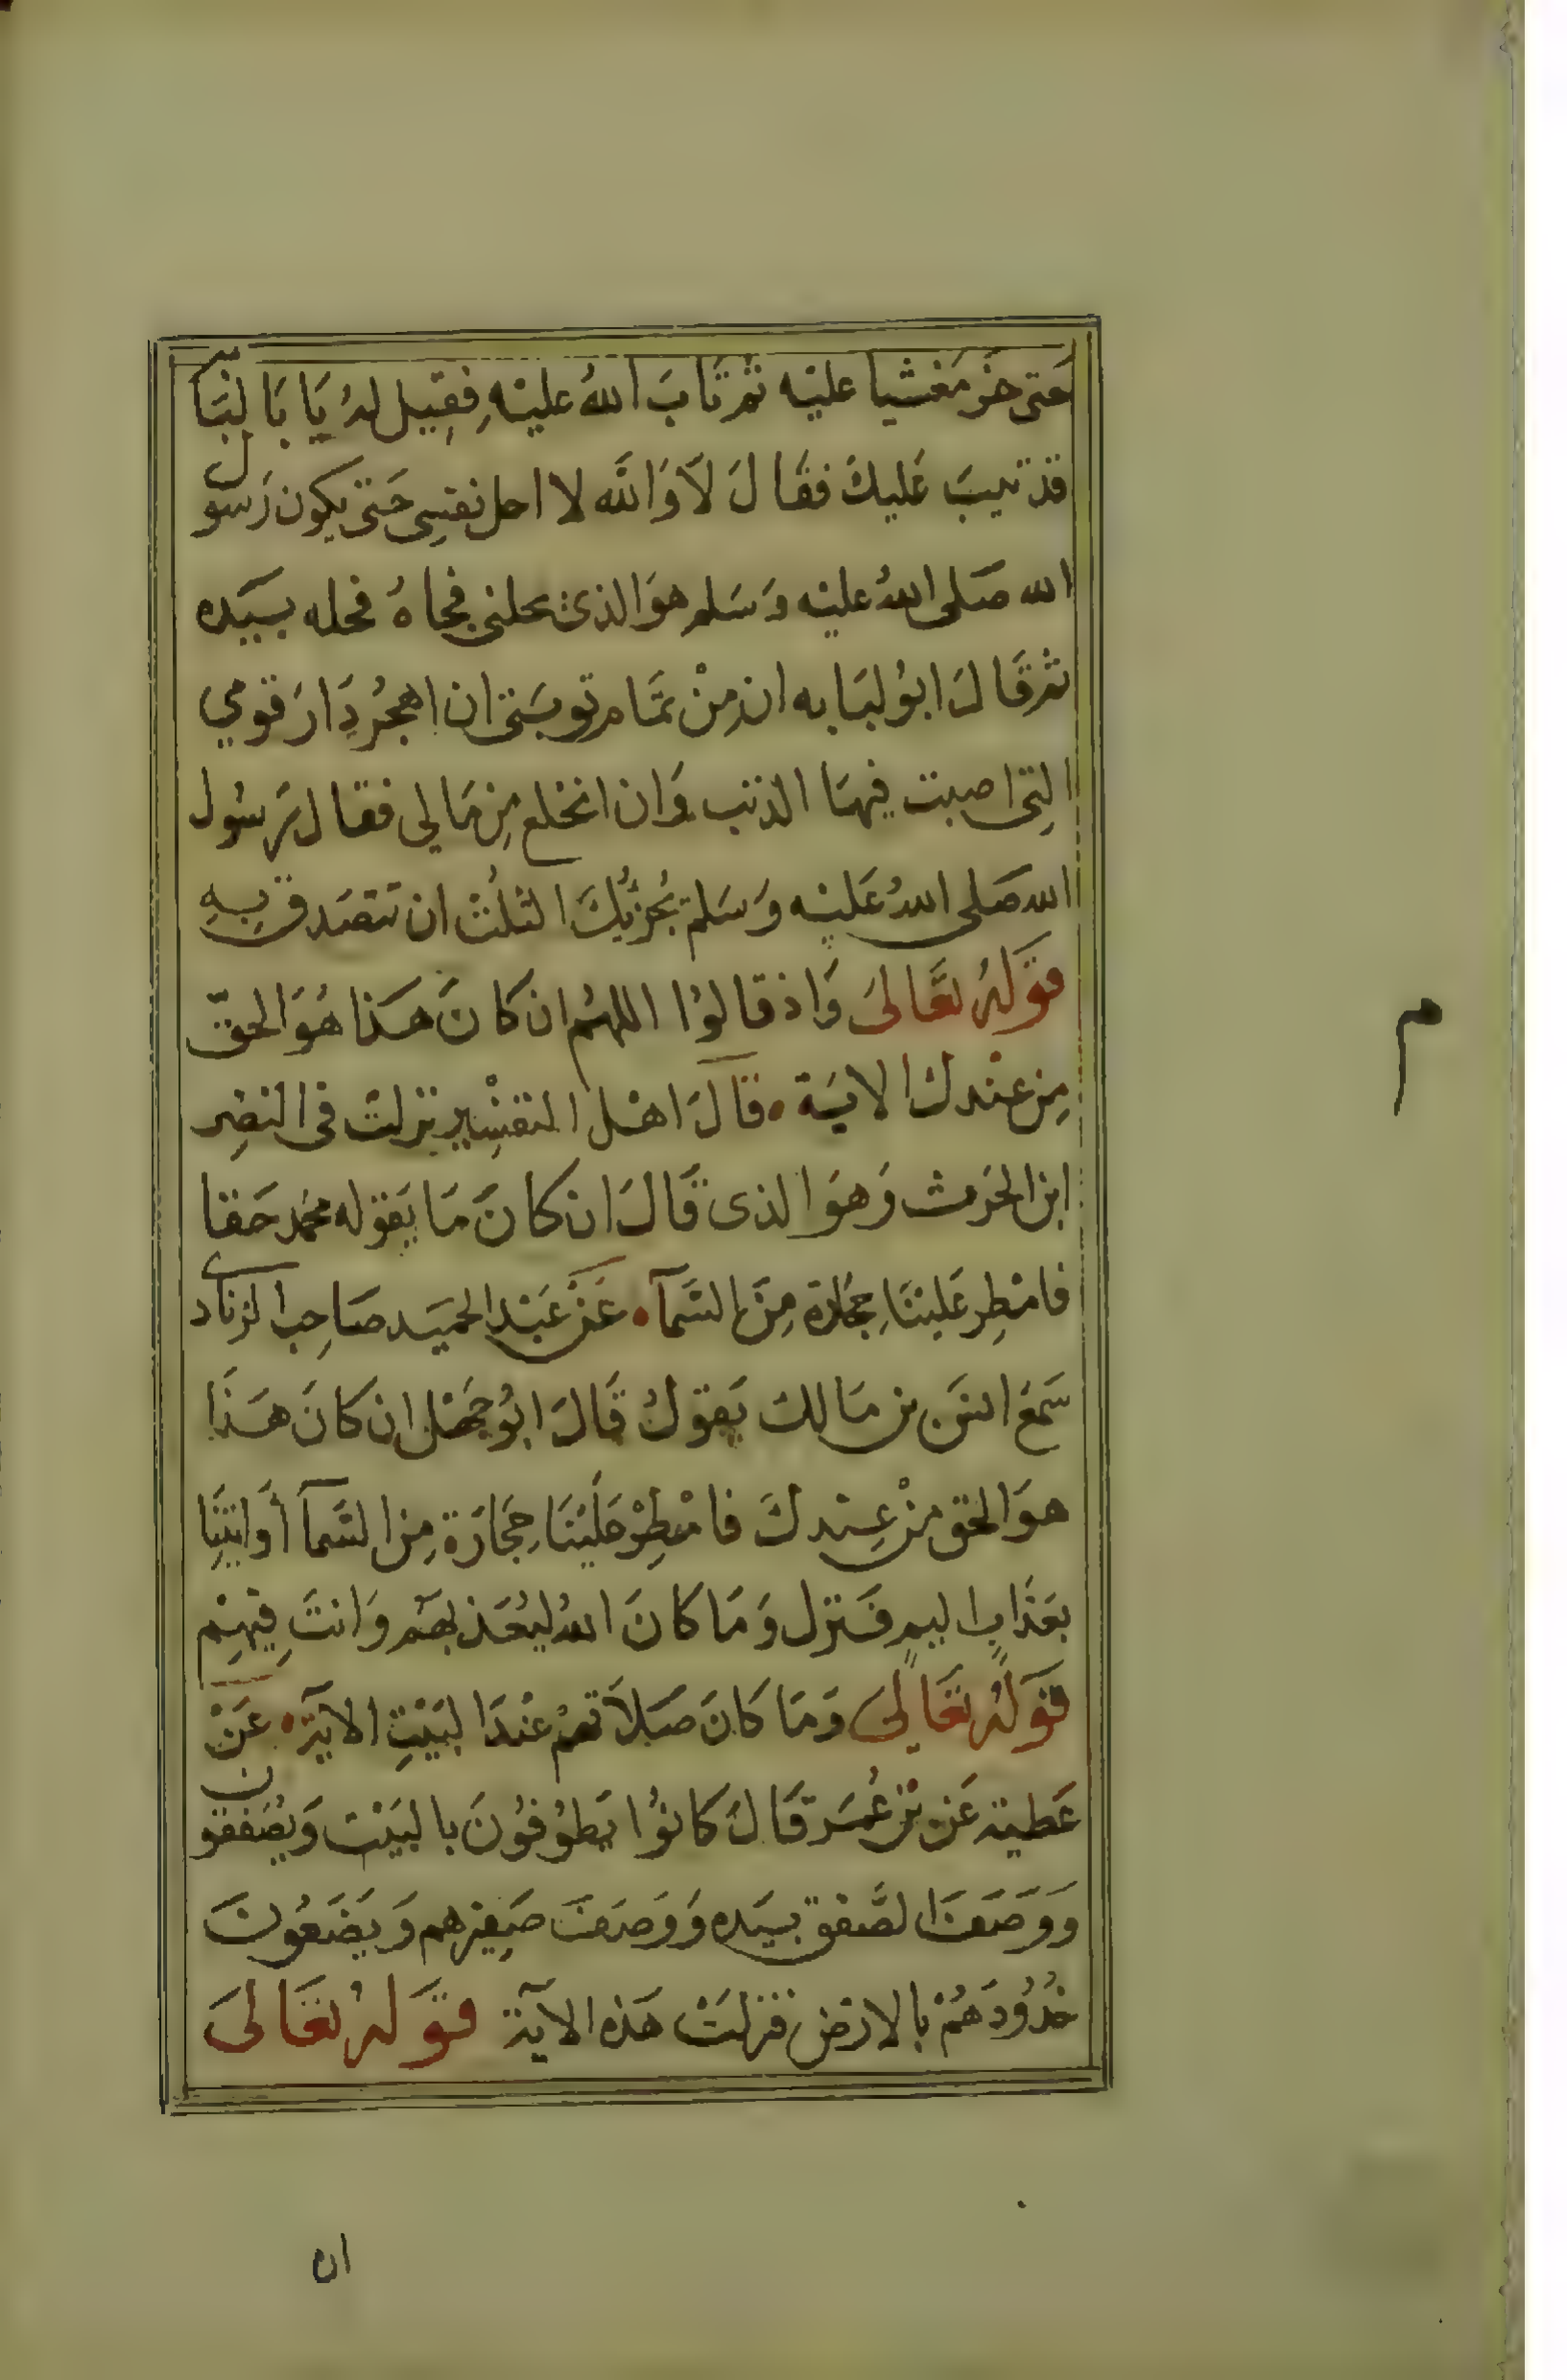 حَتى خرمَغشيا عليْه ثم تَابَ اللهُ عليْهِ فقِيل لهُ يَا بَا لبَابَة
قد تيبَ عَليكَ فقَالَ لاَ وَاللّه لا احل نفسِى حَتىّ يكون رَسول
الله صَلى اللهُ عليْه وَسَلم هوَ الذىْ يحلنى فجاهُ فحله بيَده
ثم قَالَ ابوُ لبَابه ان مِنْ تمَام توبَتىّ ان اهجُر دَارَ قومي
التِى اصبت فيهَا الذنب وَان انخلع مِن مَالي فقال رَسُول
الله صَلى اللهُ عَليْه وَسَلم يُجزيُكَ الثلُثْ ان تتصَدق بِهِ
قوَلهُ تعَالىَ وَاذ قالوُا اللهُم ان كَانَ هَذا هُوَ الحقّ
مِن عنْدك الايَة قالَ اهْل التفسِير نزلت فى النضِر
ابن الحَرث وَهوَ الذى قَالَ ان كَانَ مَا يَقوله محمد حَقا
فامْطِر عَليْنَا حِجَارة مِنَ السّمَآء عَنْ عَبْد الحميَد صَاحِب الزنادى
سَمعَ انسَ بن مَالك يَقولُ قَالَ ابوُ جَهْل ان كانَ هَذَا
هوَ الحق مِنْ عِنْدكَ فامْطِرْ عَليْنَا حِجَارَة مِن السّمآ أوَ ائتِنَا
بعَذَابٍ اليمٍ فَنزل وَمَا كانَ اللهُ ليُعَذبهَم وَانتَ فِيهِمْ
قوَلهُ تعَالىَ وَمَا كَانَ صَلاَتهمُ عْندَ البَيْتِ الايَة عَنْ
عَطيَة عَن بْن عُمَر قَالَ كانوُا يَطوُفوُنَ بالبَيْت وَيُصَفقون
وَوَصَفَ الصّفق بيَده وَوَصَفَ صَفِيرهم وَيَضَعُونَ
خُدُودَهُمْ بالارْض فنزلَتْ هَذه الآيَة قوَلهُ تعَالىَ
م
ان